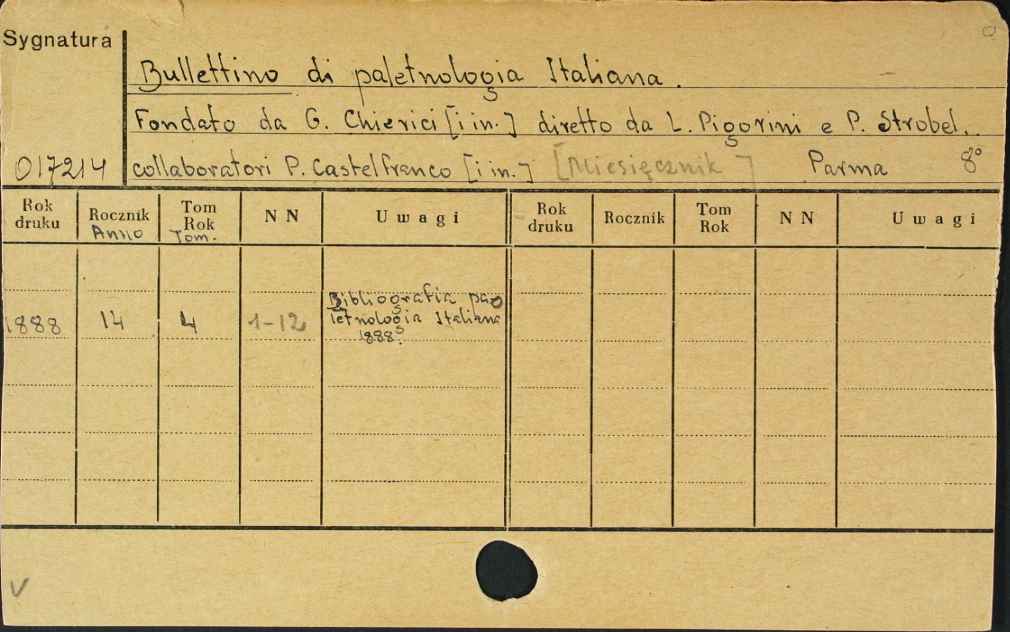 Sygnatura
Bullettino di paletnologia Italiana.
Fondato da G. Chierici [i in.] diretto da L. Pigorini e P. Strobel.
017214 collaboratori P. Castelfranco [i in.] [Miesięcznik] Parma 8°
Rok druku Rocznik Anno Tom Rok Tom. NN Uwagi Rok druku Rocznik Tom Rok NN Uwagi
Bibliografia pa
1888 14 4 1-12 letnologia Italiana
1888.